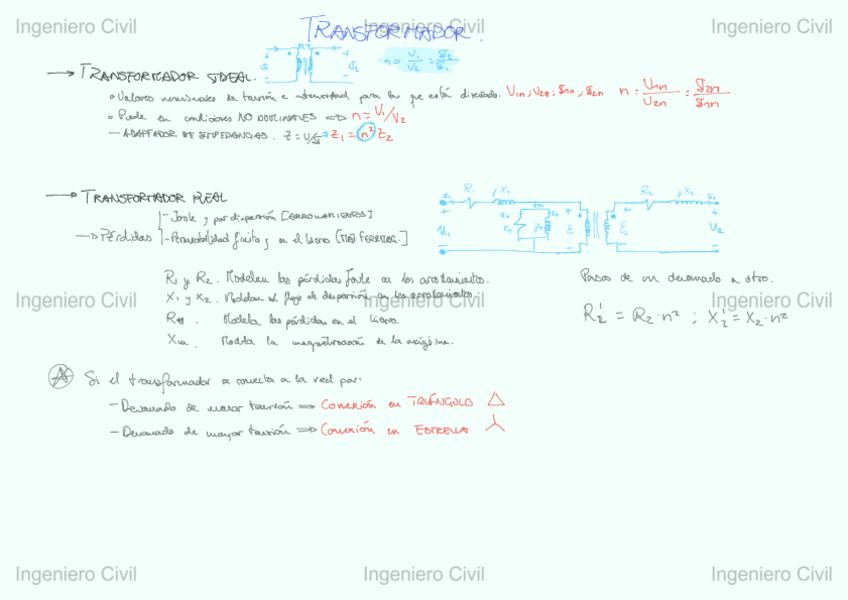 Ingeniero Civil Ingeniero Civil Ingeniero Civil
TRANSFORMADOR.
n = V1/V2 = I2/I1
→ TRANSFORMADOR IDEAL.
• Valores nominales de tensión e intensidad para los que está diseñado. V1n; V2n; I1n; I2n n = V1n/V2n = I2n/I1n
• Puede en condiciones NO NOMINALES ⇒ n = V1/V2
— ADAPTADOR DE IMPEDANCIAS. Z = U/I ⇒ Z1 = n² Z2
→ TRANSFORMADOR REAL
R1 jX1 R2 jX2
U1 U2
→ Pérdidas
- Joule y por dispersión [ARROLLAMIENTOS]
- Permeabilidad finita y en el hierro
R1 y R2. Modelan las pérdidas Joule en los arrollamientos.
X1 y X2. Modelan el flujo de dispersión en los arrollamientos.
Modela las pérdidas en el hierro.
Modela la magnetización de la máquina.
Pasos de un devanado a otro.
R2' = R2·n² ; X2' = X2·n²
Ingeniero Civil Ingeniero Civil Ingeniero Civil
Si el transformador se conecta a la red por:
— Devanado de menor tensión ⇒ Conexión en TRIÁNGULO △
— Devanado de mayor tensión ⇒ Conexión en ESTRELLA
Ingeniero Civil Ingeniero Civil Ingeniero Civil